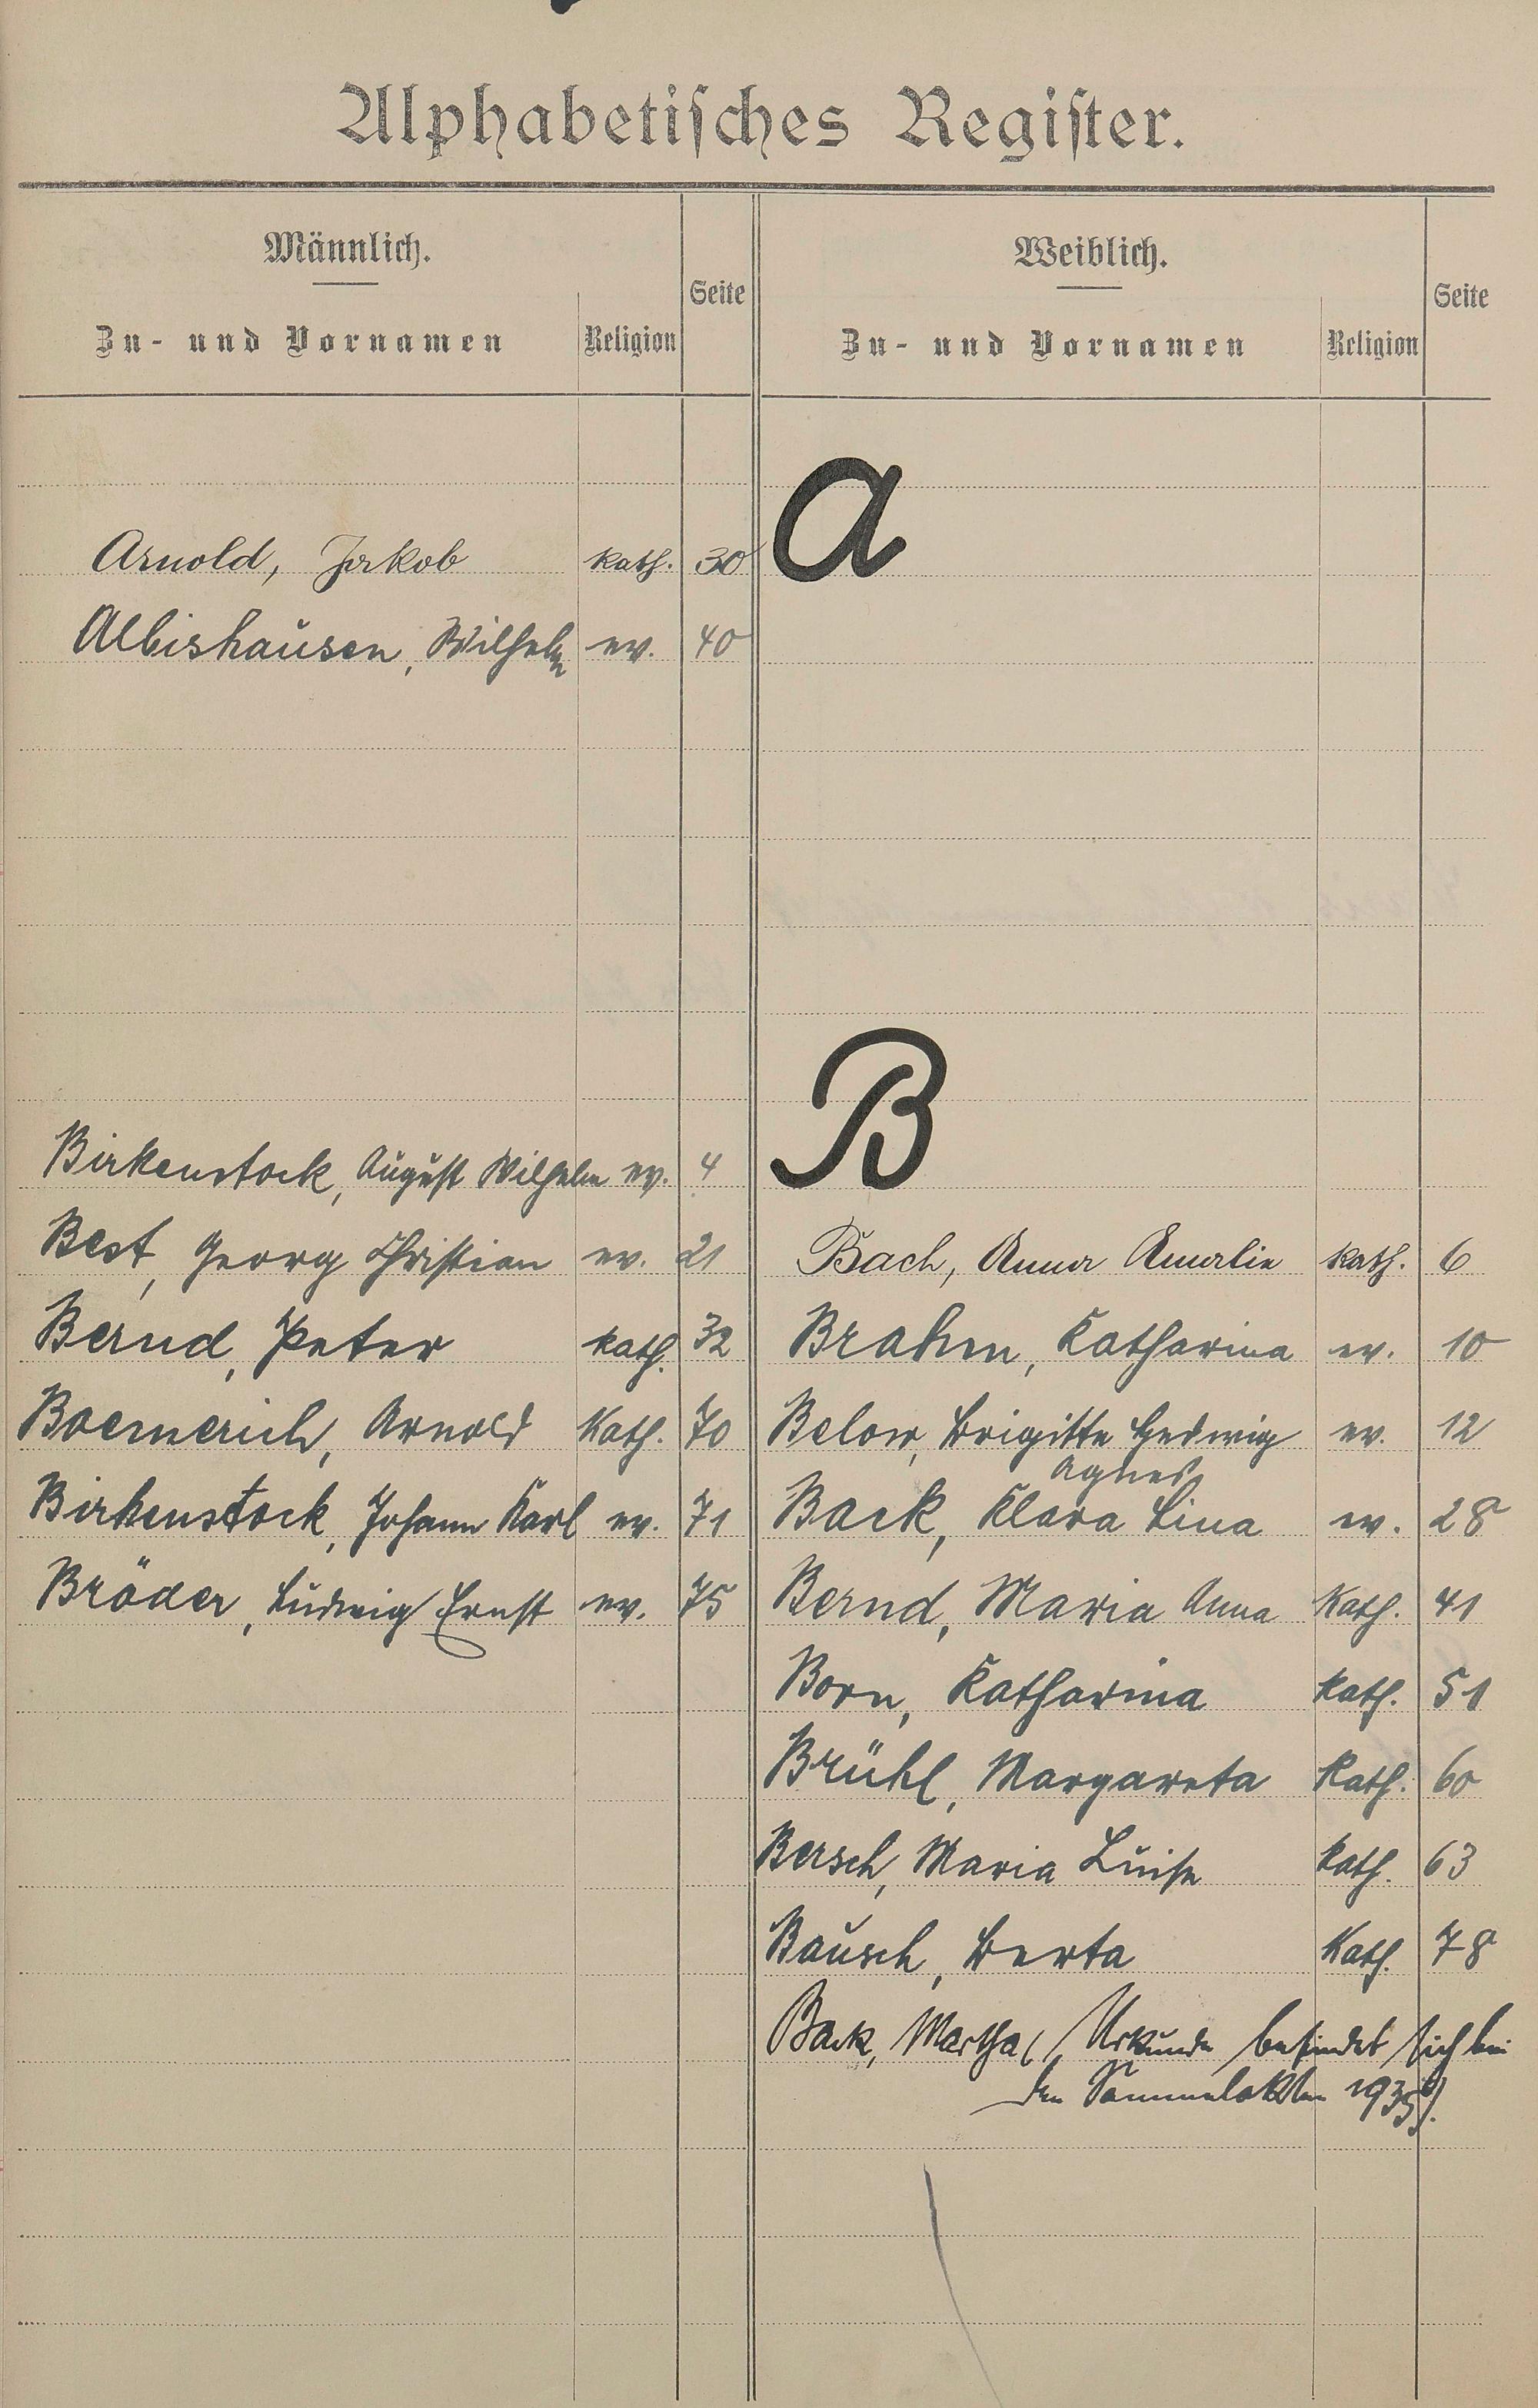 Alphabetisches Register.
Männlich. Seite Weiblich. Seite
Zu- und Vornamen Religion Zu- und Vornamen Religion
A
Arnold, Jakob kath. 30
Albishausen, Wilhelm ev. 40
B
Birkenstock, August Wilhelm ev. 4
Best, Georg Christian ev. 21 Bach, Anna Amalie kath. 6
Bernd, Peter kath. 32 Brahm, Katharina ev. 10
Boemerich, Arnold Kath. 70 Below, Brigitte Hedwig ev. 12
Agnes
Birkenstock, Johann Karl ev. 71 Back, Klara Lina ev. 28
Bröder, Ludwig Ernst ev. 75 Bernd, Maria Anna Kath. 41
Born, Katharina kath. 51
Brühl, Margareta Kath. 60
Bersch, Maria Luise kath. 63
Bausch, Berta Kath. 78
Back, Martha (Urkunde befindet sich bei
den Sammelakten 1935).